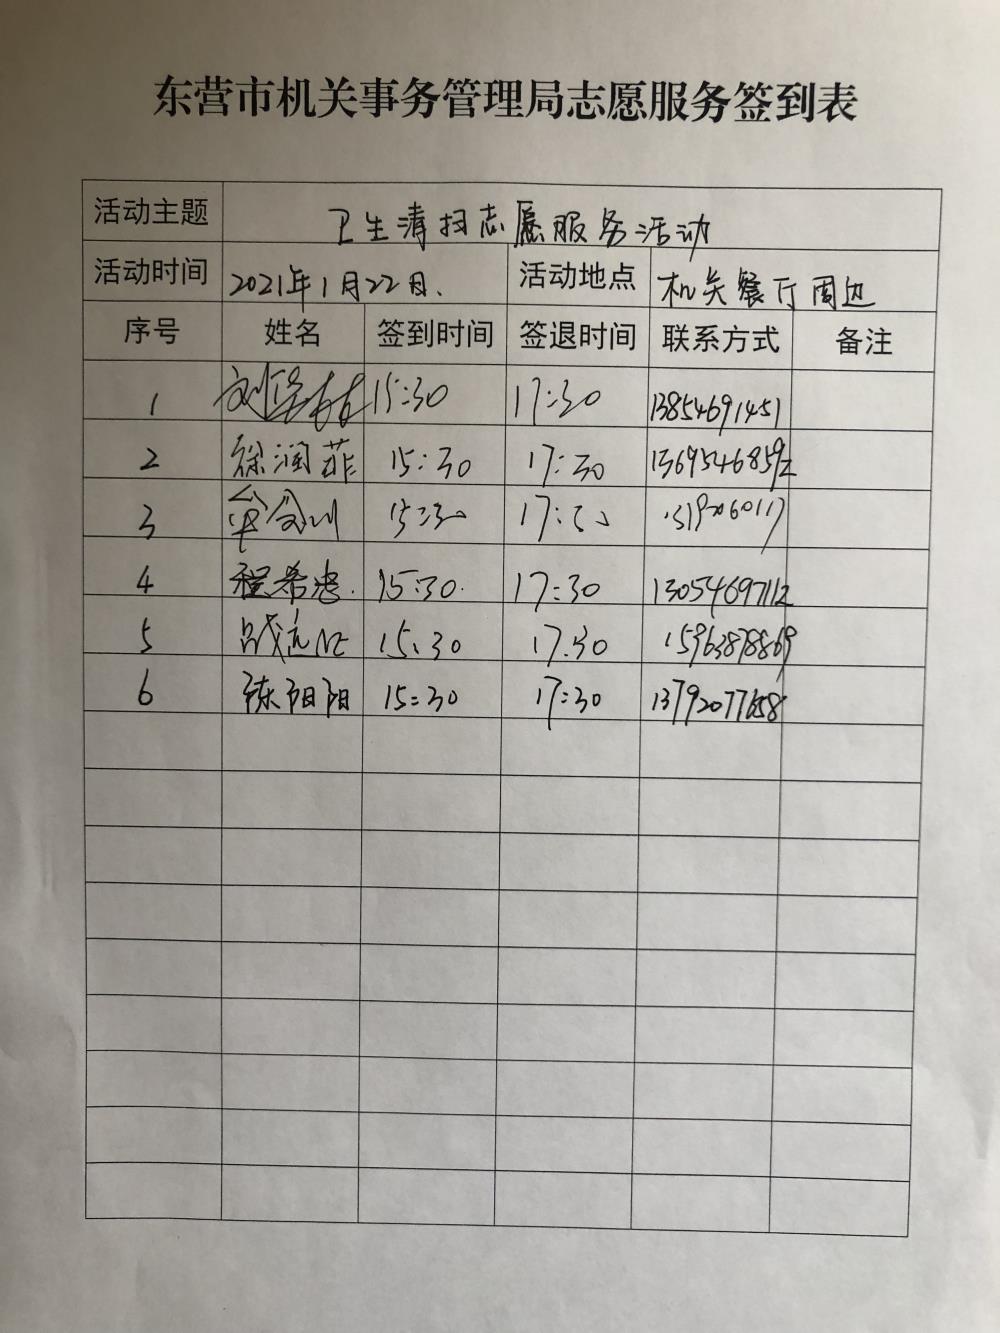 东营市机关事务管理局志愿服务签到表
活动主题 卫生清扫志愿服务活动
活动时间 2021年1月22日. 活动地点 机关餐厅周边
序号 姓名 签到时间 签退时间 联系方式 备注
1 15:30 17:30 13854691451
2 徐润菲 15:30 17:30 13695468592
3 15:30 17:30
4 程希忠. 15:30. 17:30 13054697112
5 15:30 17:30 15963878869
6 陈阳阳 15:30 17:30 13792077658